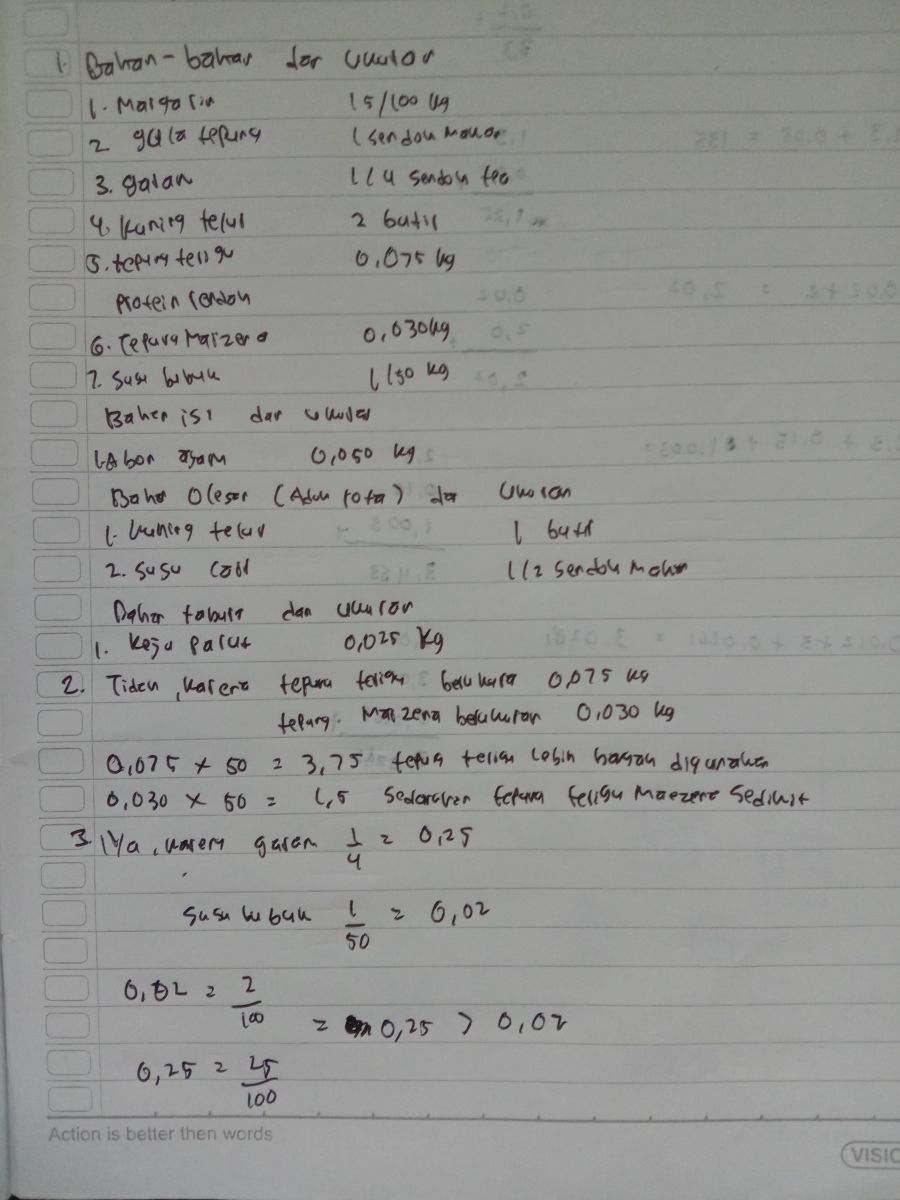 1. Bahan-bahan dan ukuran
1. Margarin 15/100 kg
2 gula tepung 1 sendok makan
3. garam 1/4 sendok teh
4. kuning telur 2 butir
5. tepung terigu 0,075 kg
Protein rendah
6. Tepung Maizena 0,030 kg
7. Susu bubuk 1/50 kg
Bahan isi dan ukuran
1. Abon ayam 0,050 kg
Bahan Olesan (Aduk rata) dan Ukuran
1. kuning telur 1 butir
2. Susu cair 1/2 sendok makan
Bahan tabur dan ukuran
1. keju parut 0,025 kg
2. Tidak, karena tepung terigu berukuran 0,075 kg
tepung. Maizena berukuran 0,030 kg
0,075 × 50 = 3,75 tepung terigu lebih banyak digunakan
0,030 × 50 = 1,5 Sedangkan tepung terigu Maezena sedikit
3. Iya, karena garam 1/4 = 0,25
Susu bubuk 1/50 = 0,02
0,02 = 2/100
= 0,25 > 0,02
0,25 = 25/100
Action is better then words